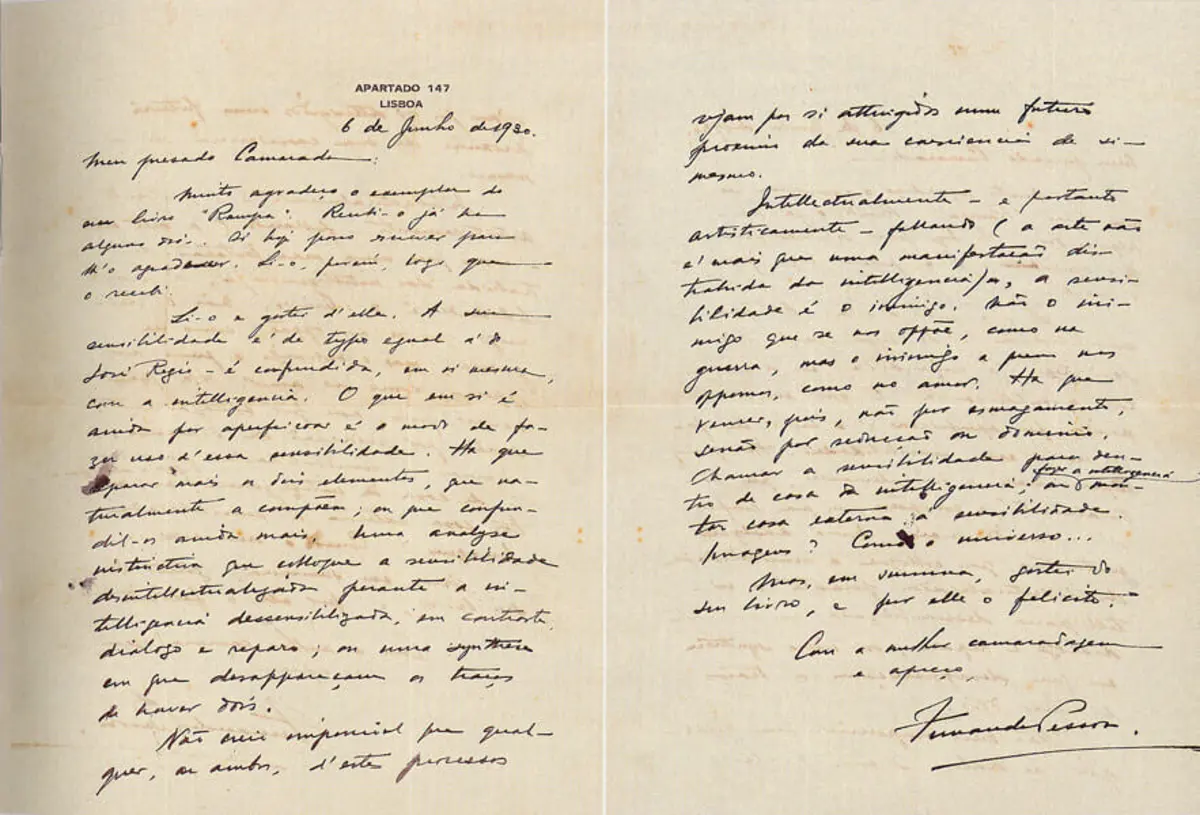 APARTADO 147
LISBOA
6 de Junho de 1930.
Meu presado Camarada:
Muito agradeço o exemplar do
seu livro "Rampa". Recebi-o já ha
alguns dias. Só hoje posso escrever para
lh'o agradecer. Li-o, porém, logo que
o recebi.
Li-o e gostei d'elle. A sua
sensibilidade é de typo egual á do
José Regio - é confundida, em si mesma,
com a intelligencia. O que em si é
ainda por aperfeiçoar é o modo de fa-
zer uso d'essa sensibilidade. Ha que
separar mais os dois elementos, que na-
turalmente a compõem; ou que confun-
dil-os ainda mais. Uma analyse
instinctiva que colloque a sensibilidade
desintellectualizada perante a in-
telligencia dessensibilizada, em contraste,
dialogo e reparo; ou uma synthese
em que desappareçam os traços
de haver dois.
Não creio impossivel que qual-
quer, ou ambos, d'estes processos
sejam por si attingidos num futuro
proximo da sua consciencia de si-
mesmo.
Intellectualmente - e portanto
artisticamente - fallando (a arte não
é mais que uma manifestação dis-
trahida da intelligencia), a sensi-
bilidade é o inimigo. Não o ini-
migo que se nos oppõe, como na
guerra, mas o inimigo a quem nos
oppomos, como no amor. Ha que
vencer, pois, não por esmagamento,
senão por seducção ou dominio.
Chamar a sensibilidade para den-
tro de casa da intelligencia; ou fazer a intelligencia mon-
tar casa externa á sensibilidade.
Imagens? Como o universo...
Mas, em summa, gostei do
seu livro, e por elle o felicito.
Com a melhor camaradagem
e apreço,
Fernando Pessoa.